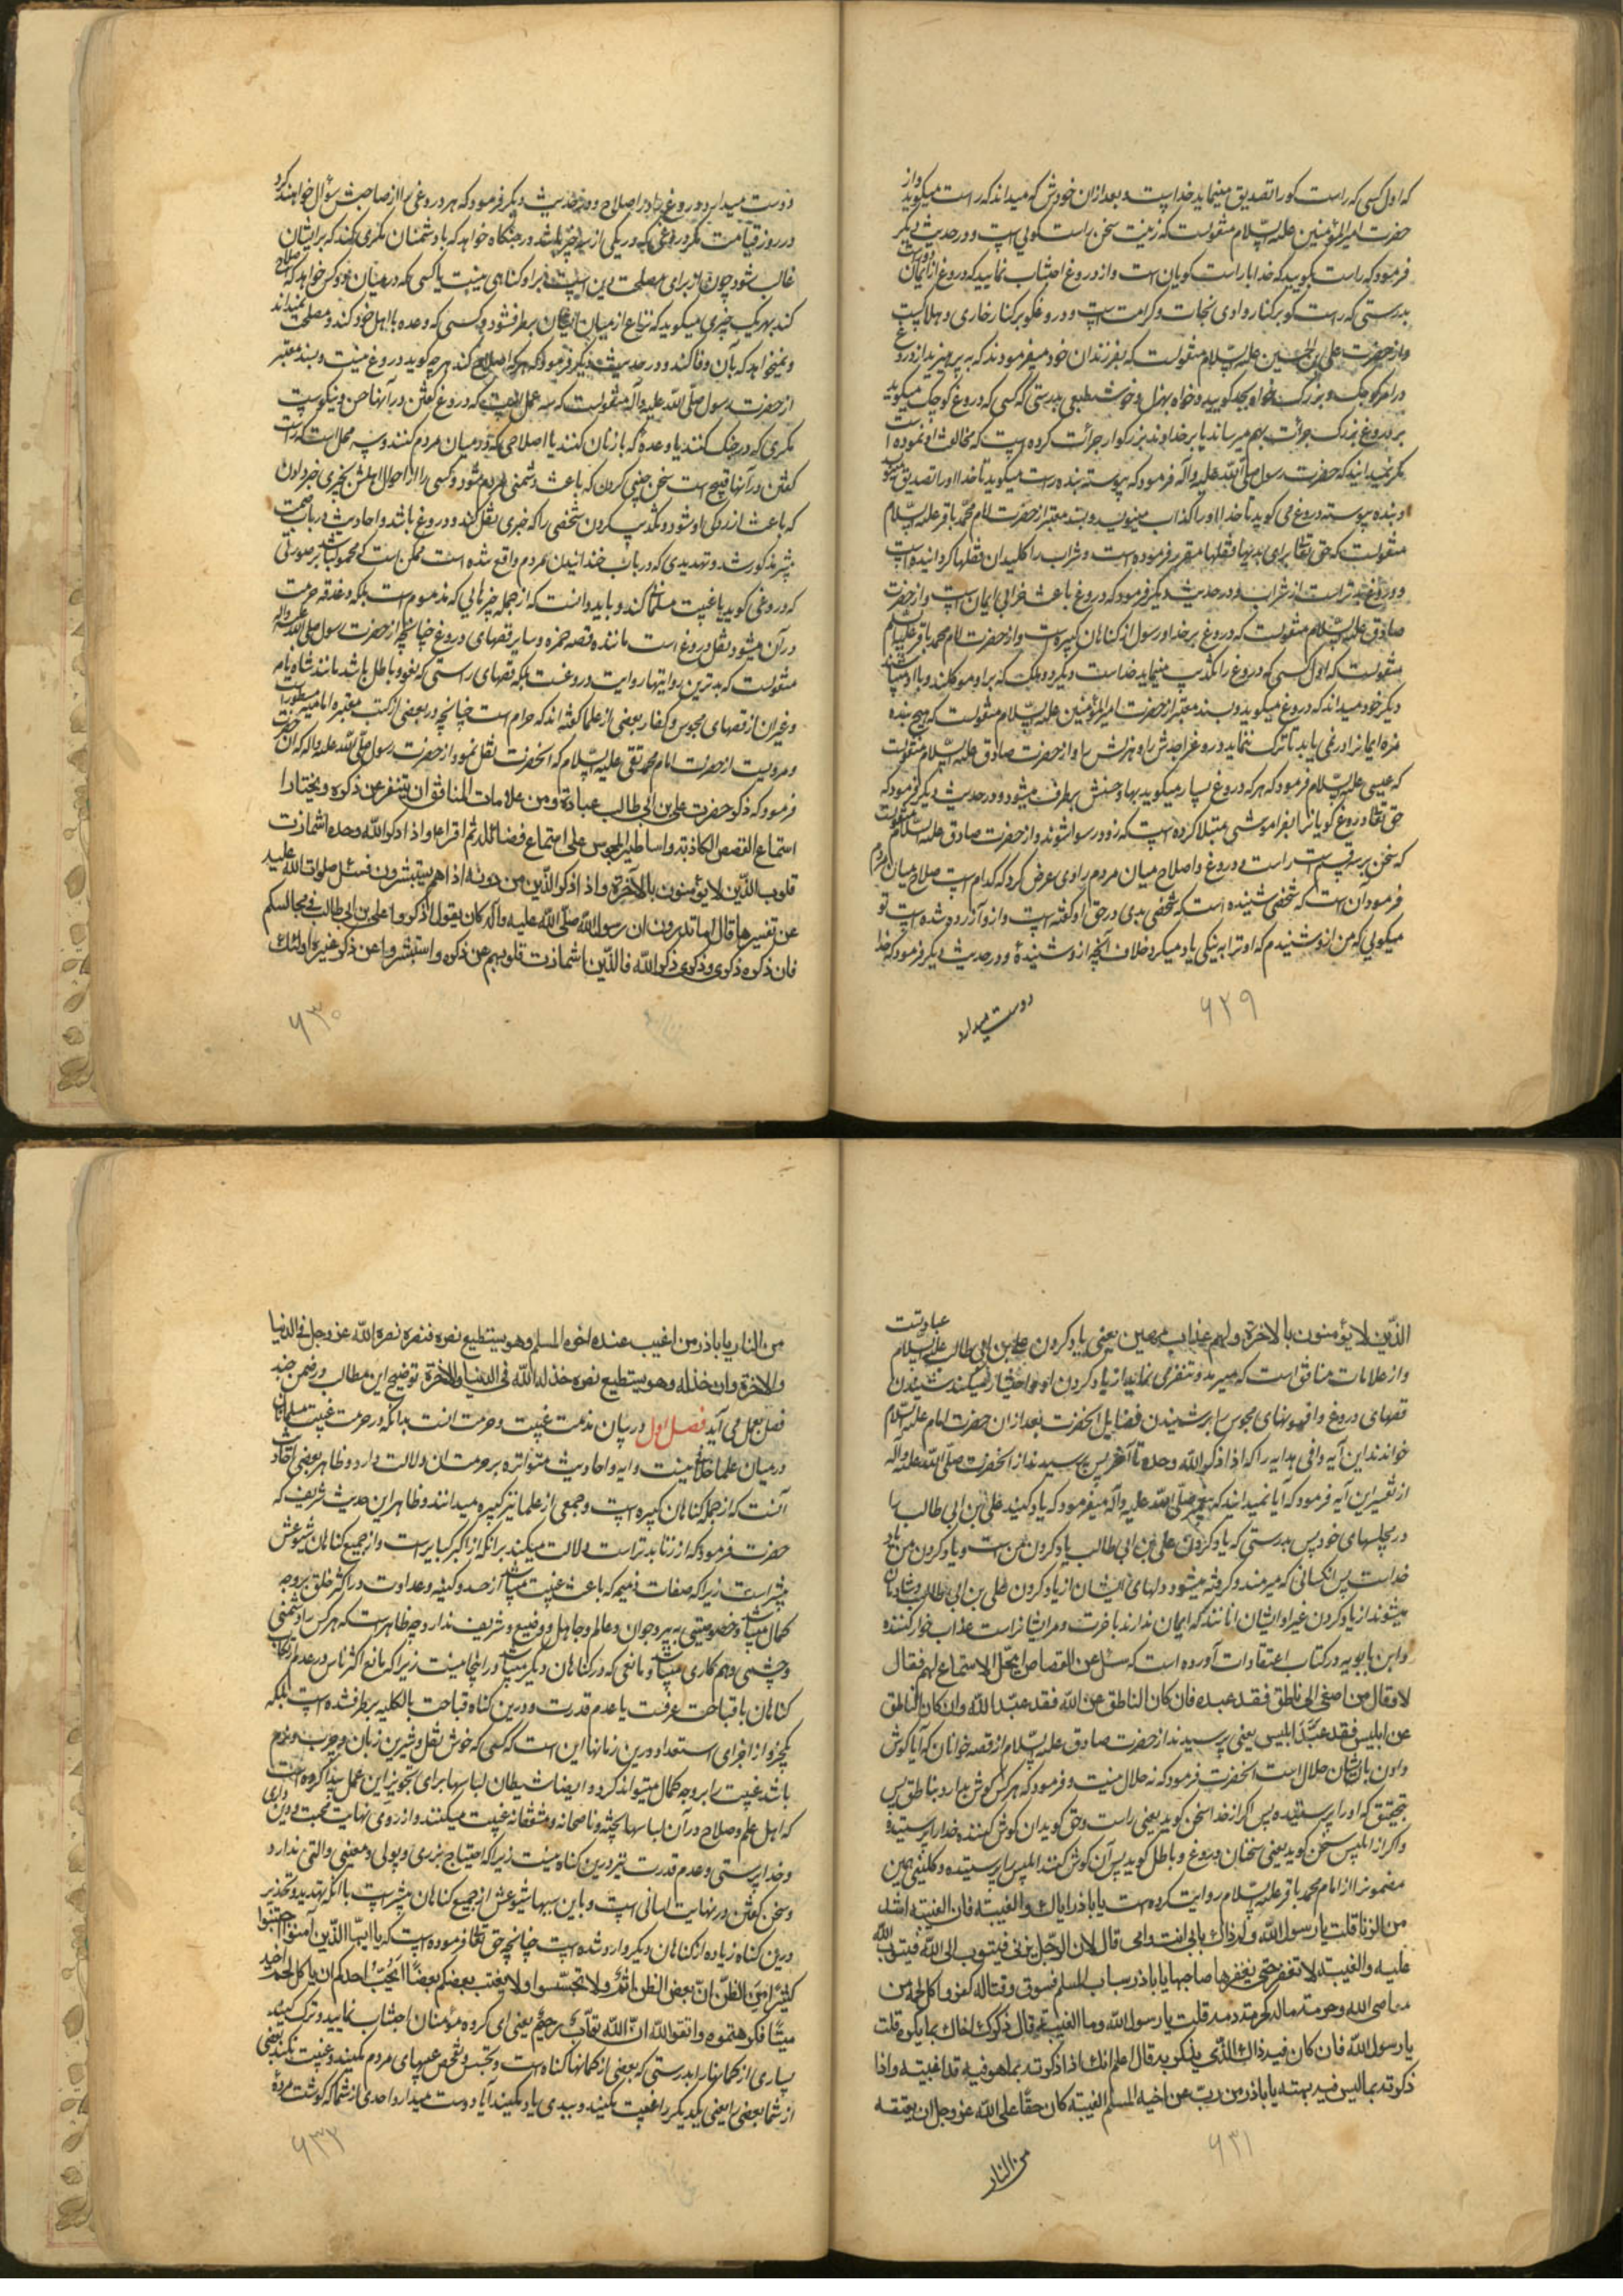 که اول کسی که راست کو را تصدیق مینماید خداست و بعد ازان خودش که میداند که راست میکوید و از
حضرت امیرالمؤمنین علیه السّلام منقولست که زینت سخن راست کویی است و در حدیث دیکر
فرمود که راست بکویید که خدا با راست کویان است و از دروغ اجتناب نمایید که دروغ از ایمان دورست
بدرستی که راست کو بر کنار وادی نجات و کرامت است و دروغکو بر کنار خاری و هلاکیست
و از حضرت علی بن الحسین علیه السّلام منقولست که بفرزندان خود میفرمودند که به پرهیزید از دروغ
در امر کوچک و بزرک خواه بجد کویید و خواه بهزل و خوش طبعی بدرستی که کسی که دروغ کوچک میکوید
بر دروغ بزرک جرأت بهم میرساند یا بر خداوند بزرکوار جرأت کرده است که مخالفت او نموده است
مکر نمیدانید که حضرت رسول صلّی اللّه علیه و آله فرمود که پیوسته بنده راست میکوید تا خدا او را تصدیق مینویسد
و بنده پیوسته دروغ می کوید تا خدا او را کذاب مینویسد و بسند معتبر از حضرت امام محمّد باقر علیه السّلام
منقولست که حق تعالی برای بدیها قفلها مقرر فرموده است و شراب را کلید ان قفلها کردانیده است
و دروغ بدتر است از شراب و در حدیث دیکر فرمود که دروغ باعث خرابی ایمان است و از حضرت
صادق علیه السّلام منقولست که دروغ بر خدا و رسول از کناهان کبیره است و از حضرت امام محمد باقر علیه السلم
منقولست که اول کسی که دروغ را تکذیب مینماید خداست دیکر دو ملک که بر او موکلند و با او میباشند
دیکر خود میداند که دروغ میکوید و بسند معتبر از حضرت امیرالمؤمنین علیه السّلام منقولست که هیچ بنده
مزه ایمان را در نمی یابد تا ترک ننماید دروغ را جدش را و هزلش را و از حضرت صادق علیه السّلام منقولست
که عیسی علیه السّلام فرمود که هر که دروغ بسیار میکوید بهاء حسنش برطرف میشود و در حدیث دیکر فرمود که
حق تعالی دروغ کویان را بفراموشی مبتلا کرده است که زود رسوا شوند و از حضرت صادق علیه السّلام منقولست
که سخن بر سه قسم است راست و دروغ و اصلاح میان مردم راوی عرض کرد که کدام است صلاح میان مردم
فرمود آن است که شخصی شنیده است که شخصی بدی در حق او کفته است و از و آزرده شده است تو
میکویی که من از و شنیدم که او ترا به نیکی یاد میکرد خلاف آنچه از و شنیدهٔ و در حدیث دیکر فرمود که خدا
دوست میدارد
۶۲۹
دوست میدارد دروغ را در اصلاح و در حدیث دیکر فرمود که هر دروغی را از صاحبش سؤال خواهند کرد
در روز قیامت مکر دروغی که در یکی از سه چیز باشد در جنکاه خواهد که با دشمنان مکری کند که بر ایشان
غالب شود چون از برای مصلحت دین است بر او کناهی نیست یا کسی که در میان دو کس خواهد که صلاح
کند بهر یک چیزی میکوید که نزاع از میان ایشان برطرف شود و کسی که وعده با اهل خود کند و مصلحت نمیداند
و نمیخواهد که بآن وفا کند و در حدیث دیکر فرمود که هر که اصلاح کند هر چه کوید دروغ نیست و بسند معتبر
از حضرت رسول صلّی اللّه علیه و آله منقولست که سه عمل است که دروغ کفتن در آنها حسن و نیکوست
مکری که در جنک کنند یا وعدهٔ که با زنان کنند یا اصلاحی که در میان مردم کنند و سه محل است که راست
کفتن در آنها قبیح است سخن چینی کردن که باعث دشمنی مردم شود و کسی را از احوال اهلش بخبری خبر دادن
که باعث آزردکی او شود و تکذیب کردن شخصی را که خبری نقل کند و دروغ باشد و احادیث در باب صمت
پیشتر مذکور شد و تهدیدی که در باب خندانیدن مردم واقع شده است ممکن است که محمول باشد بر صورتی
که دروغی کوید یا غیبت مسلمانی کند و باید دانست که از جمله چیزهایی که مذموم است بلکه دغدغه حرمت
در آن میشود نقل دروغ است مانند قصه حمزه و سایر قصهای دروغ چنانچه از حضرت رسول صلی الله علیه و آله
منقولست که بدترین روایتها روایت دروغست بلکه قصهای راستی که لغو و باطل باشد مانند شاه نامه
و غیر آن از قصهای مجوس و کفار بعضی از علما کفته اند که حرام است چنانچه در بعضی از کتب معتبره امامیه مسطورست
و مرویست از حضرت امام محمد تقی علیه السّلام که آنحضرت نقل نمود از حضرت رسول صلّی اللّه علیه و اله که ان حضرت
فرمود که ذکر حضرت علی بن ابی طالب عبادة و من علامات المنافق ان یتنفر عن ذکره و یختار
استماع القصص الکاذبة و اساطیر المجوس علی استماع فضائله ثم اقرأ و اذا ذکر اللّه وحده اشمازت
قلوب الّذین لا یؤمنون بالآخرة و اذا ذکر الّذین من دونه اذا هم یستبشرون فسئل صلوات اللّه علیه
عن تفسیرها قال اما تدرون ان رسول اللّه صلّی اللّه علیه و آله کان یقول اذکروا علی بن ابی طالب فی مجالسکم
فان ذکره ذکری و ذکری ذکر اللّه فالذّین اشمازت قلوبهم عن ذکره و استبشروا عن ذکر غیره اولئک
۶۳۰
الذّین لا یؤمنون بالاخرة و لهم عذاب مهین یعنی یاد کردن علی بن ابی طالب علیه السّلام عبادتست
و از علامات منافق است که میرمد و تنفر می نماید از یاد کردن او و اختیار میکند شنیدن
قصهای دروغ و افسونهای مجوس را بر شنیدن فضایل آنحضرت بعد ازان حضرت امام علیه السّلام
خواندند این آیه وافی هدایه را که اذا ذکر اللّه وحده تا آخر پس پرسیدند از آنحضرت صلّی اللّه علیه و آله
از تفسیر این آیه فرمود که آیا نمیدانید که پیغمبر صلّی اللّه علیه و آله میفرمود که یاد کنید علی بن ابی طالب را
در مجلسهای خود پس بدرستی که یاد کردن علی بن ابی طالب یاد کردن من است و یاد کردن من یاد
خداست پس انکسانی که میرمند و کرفته میشود دلهای ایشان از یاد کردن علی بن ابی طالب و شادمان
میشوند از یاد کردن غیر او ایشان آنانند که ایمان ندارند باخرت و مر ایشانراست عذاب خوار کننده
و ابن بابویه در کتاب اعتقادات آورده است که سئل عن القصاص ایحل الاستماع لهم فقال
لا و قال من اصغی الی ناطق فقد عبده فان کان الناطق عن اللّه فقد عبد اللّه و ان کان الناطق
عن ابلیس فقد عبد ابلیس یعنی پرسیدند از حضرت صادق علیه السّلام از قصه خوانان که آیا کوش
دادن بایشان حلال است انحضرت فرمود که نه حلال نیست و فرمود که هر کس کوش بدارد بناطقی پس
بتحقیق که او را پرستیده پس اکر از خدا سخن کوید یعنی راست و حق کوید ان کوش کننده خدا را پرستیده
و اکر از ابلیس سخن کوید یعنی سخنان دروغ و باطل کوید پس آن کوش کننده ابلیس را پرستیده و کلینی همین
مضمون را از امام محمد باقر علیه السّلام روایت کرده است یا باذر ایاک و الغیبة فان الغیبة اشد
من الزنا قلت یا رسول اللّه و لم ذاک بابی انت و امی قال لان الرّجل یزنی فیتوب الی اللّه فیتوب اللّه
علیه و الغیبة لا تغفر حتی یغفرها صاحبها یا باذر سباب المسلم فسوق و قتاله کفر و اکل لحمه من
معاصی الله و حرمة ماله کحرمة دمه قلت یا رسول اللّه و ما الغیبة قال ذکرک اخاک بما یکره قلت
یا رسول اللّه فان کان فیه ذاک الذّی یذکر به قال اعلم انک اذا ذکرته بما هو فیه قد اغتبته و اذا
ذکرته بما لیس فیه بهته یا باذر من ذب عن اخیه المسلم الغیبة کان حقّا علی اللّه عز و جل ان یعتقه
من النار
۶۳۱
من النار یا باذر من اغیب عنده اخوه المسلم و هو یستطیع نصره فنصره نصره اللّه عز و جل فی الدنیا
و الاخرة و ان خذله و هو یستطیع نصره خذله اللّه فی الدنیا و الآخرة توضیح این مطالب در ضمن چند
فصل بعمل می آید فصل اول در بیان مذمت غیبت و حرمت انست بدانکه در حرمت غیبت مسلمانان
در میان علما خلافی نیست و ایه و احادیث متواتره بر حرمت ان دلالت دارد و ظاهر بعضی احادیث
آنست که از جمله کناهان کبیره است و جمعی از علما نیز کبیره میدانند و ظاهر این حدیث شریف که
حضرت فرمود که از زنا بدتر است دلالت میکند بر انکه از اکبر کبایر است و از جمیع کناهان شیوعش
بیشتر است زیرا که صفات ذمیمه که باعث غیبت میباشد از حسد و کینه و عداوت در اکثر خلق بر وجه
کمال میباشد و خصوصیتی به پیر و جوان و عالم و جاهل و وضیع و شریف ندارد چه ظاهر است که هر کس را دشمنی
و چشمی و هم کاری میباشد و مانعی که در کناهان دیکر میباشد در اینجا نیست زیرا که مانع اکثر ناس در عدم ارتکاب
کناهان یا قباحت عرفیست یا عدم قدرت و درین کناه قباحت بالکلیه برطرف شده است بلکه
یکجزو از اجزای استعداد درین زمانها این است که کسی که خوش نقل و شیرین زبان و چرب و نرم
باشد غیبت را بر وجه کمال میتواند کرد و ایضا شیطان لباسها برای تجویز این عمل پیدا کرده است
که اهل علم و صلاح در آن لباسها بکجتة ناصحانه و مشفقانه غیبت میکنند و از روی نهایت محبت و دین داری
و خدا پرستی و عدم قدرت نیز درین کناه نیست زیرا که احتیاج بزری و پولی و معینی و التی ندارد
و سخن کفتن در نهایت اسانی است و باین سببها شیوعش از جمیع کناهان بیشتر است با انکه تهدید و تحذیر
درین کناه زیاده از کناهان دیکر وارد شده است چنانچه حق تعالی فرموده است که یا ایّها الذّین آمنوا اجتنبوا
کثیرًا من الظنّ انّ بعض الظن اثم و لا تجسّسوا و لا یغتب بعضکم بعضًا ایحبّ احدکم ان یاکل لحم اخیه
میتًا فکرهتموه و اتقوا اللّه انّ اللّه توّاب رحیم یعنی ای کروه مؤمنان اجتناب نمایید و ترک کنید
بسیاری از کمانها را بدرستی که بعضی از کمانها کناه است و تجسس و تفحص عیبهای مردم مکنید و غیبت نکند بعضی
از شما بعضی را یعنی یکدیکر را غیبت مکنید و ببدی یاد مکنید آیا دوست میدارد احدی از شما که کوشت مردهٔ
۶۳۲